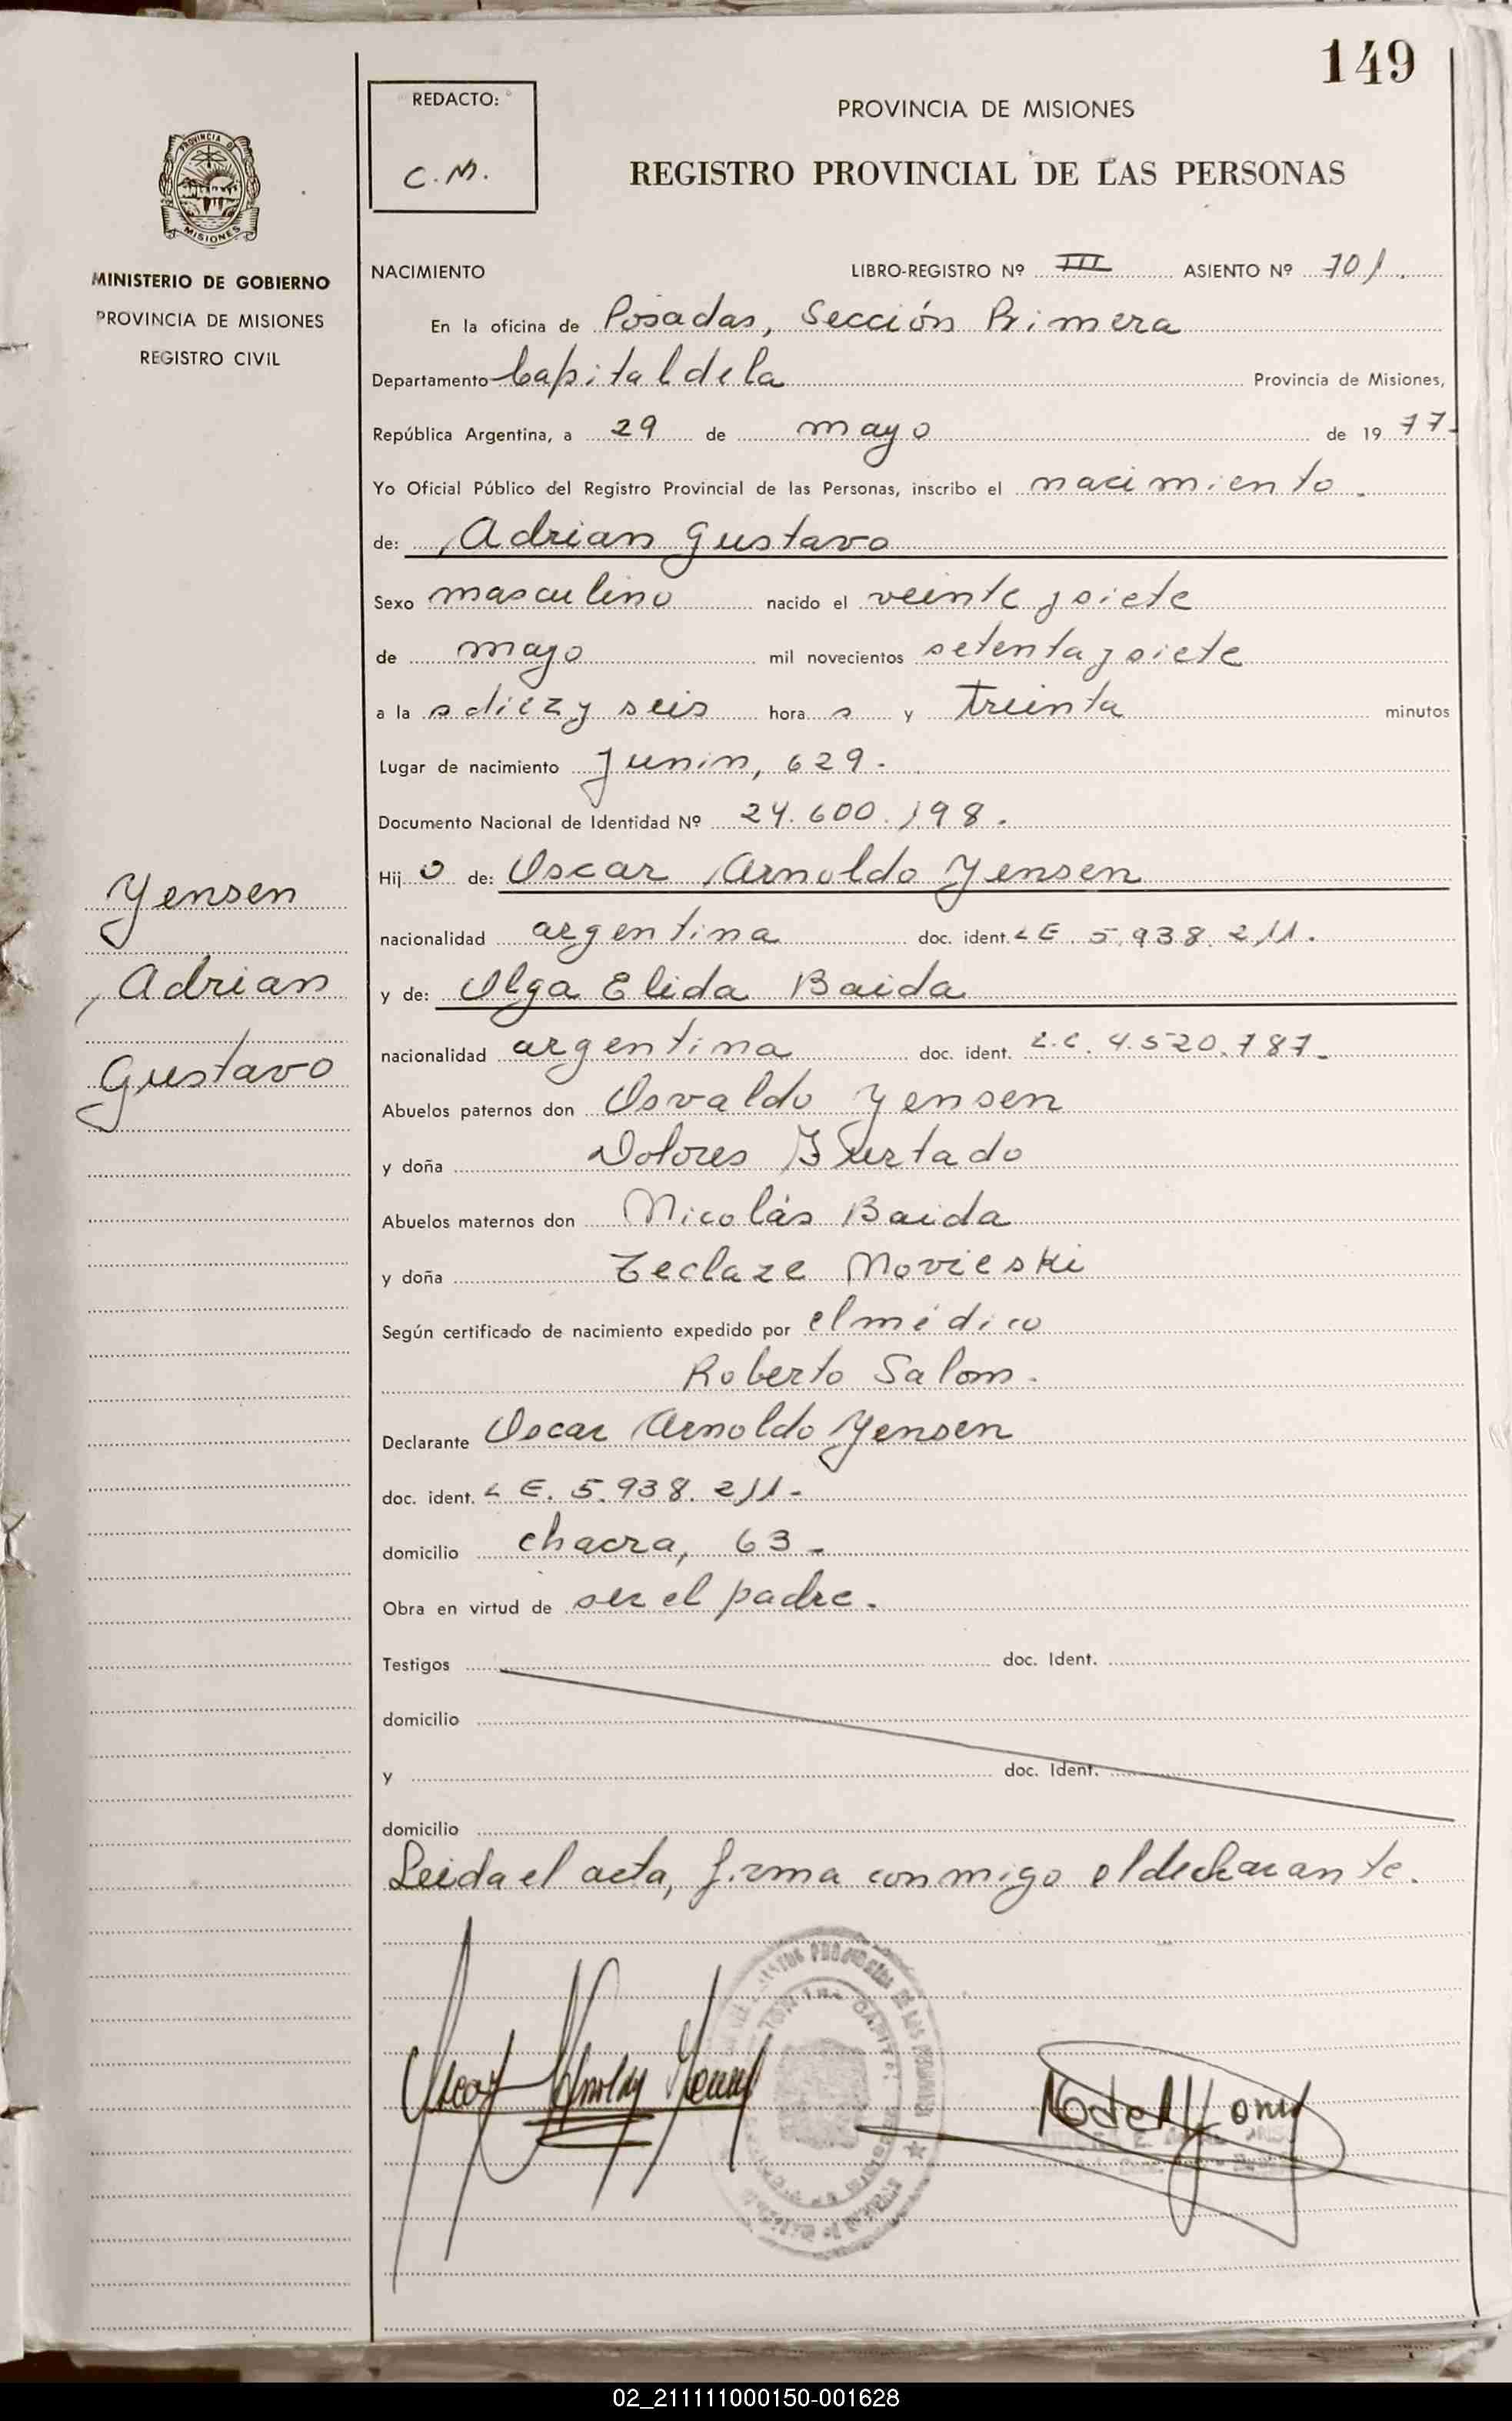 149
REDACTO:
C.M.
PROVINCIA DE MISIONES
REGISTRO PROVINCIAL DE LAS PERSONAS
PROVINCIA DE
MISIONES
MINISTERIO DE GOBIERNO
PROVINCIA DE MISIONES
REGISTRO CIVIL
NACIMIENTO LIBRO-REGISTRO Nº III ASIENTO Nº 701.
En la oficina de Posadas, Sección Primera
Departamento Capital de la Provincia de Misiones,
República Argentina, a 29 de mayo de 1977.
Yo Oficial Público del Registro Provincial de las Personas, inscribo el nacimiento.
de: Adrian Gustavo
Sexo masculino nacido el veinte y siete
de mayo mil novecientos setenta y siete
a la s diez y seis hora s y treinta minutos
Lugar de nacimiento Junin, 629.
Documento Nacional de Identidad Nº 24.600.198.
Hij o de: Oscar Arnoldo Yensen
nacionalidad argentina doc. ident. L E. 5.938.211.
y de: Olga Elida Baida
nacionalidad argentina doc. ident. L.C. 4.520.787.
Abuelos paternos don Osvaldo Yensen
y doña Dolores Hurtado
Abuelos maternos don Nicolás Baida
y doña Teclaze Movieski
Según certificado de nacimiento expedido por el médico
Roberto Salom.
Declarante Oscar Arnoldo Yensen
doc. ident. L E. 5.938.211.
domicilio chacra, 63.
Obra en virtud de ser el padre.
Testigos doc. Ident.
domicilio
y doc. Ident.
domicilio
Leida el acta, firma conmigo el declarante.
Yensen
Adrian
Gustavo
02_211111000150-001628